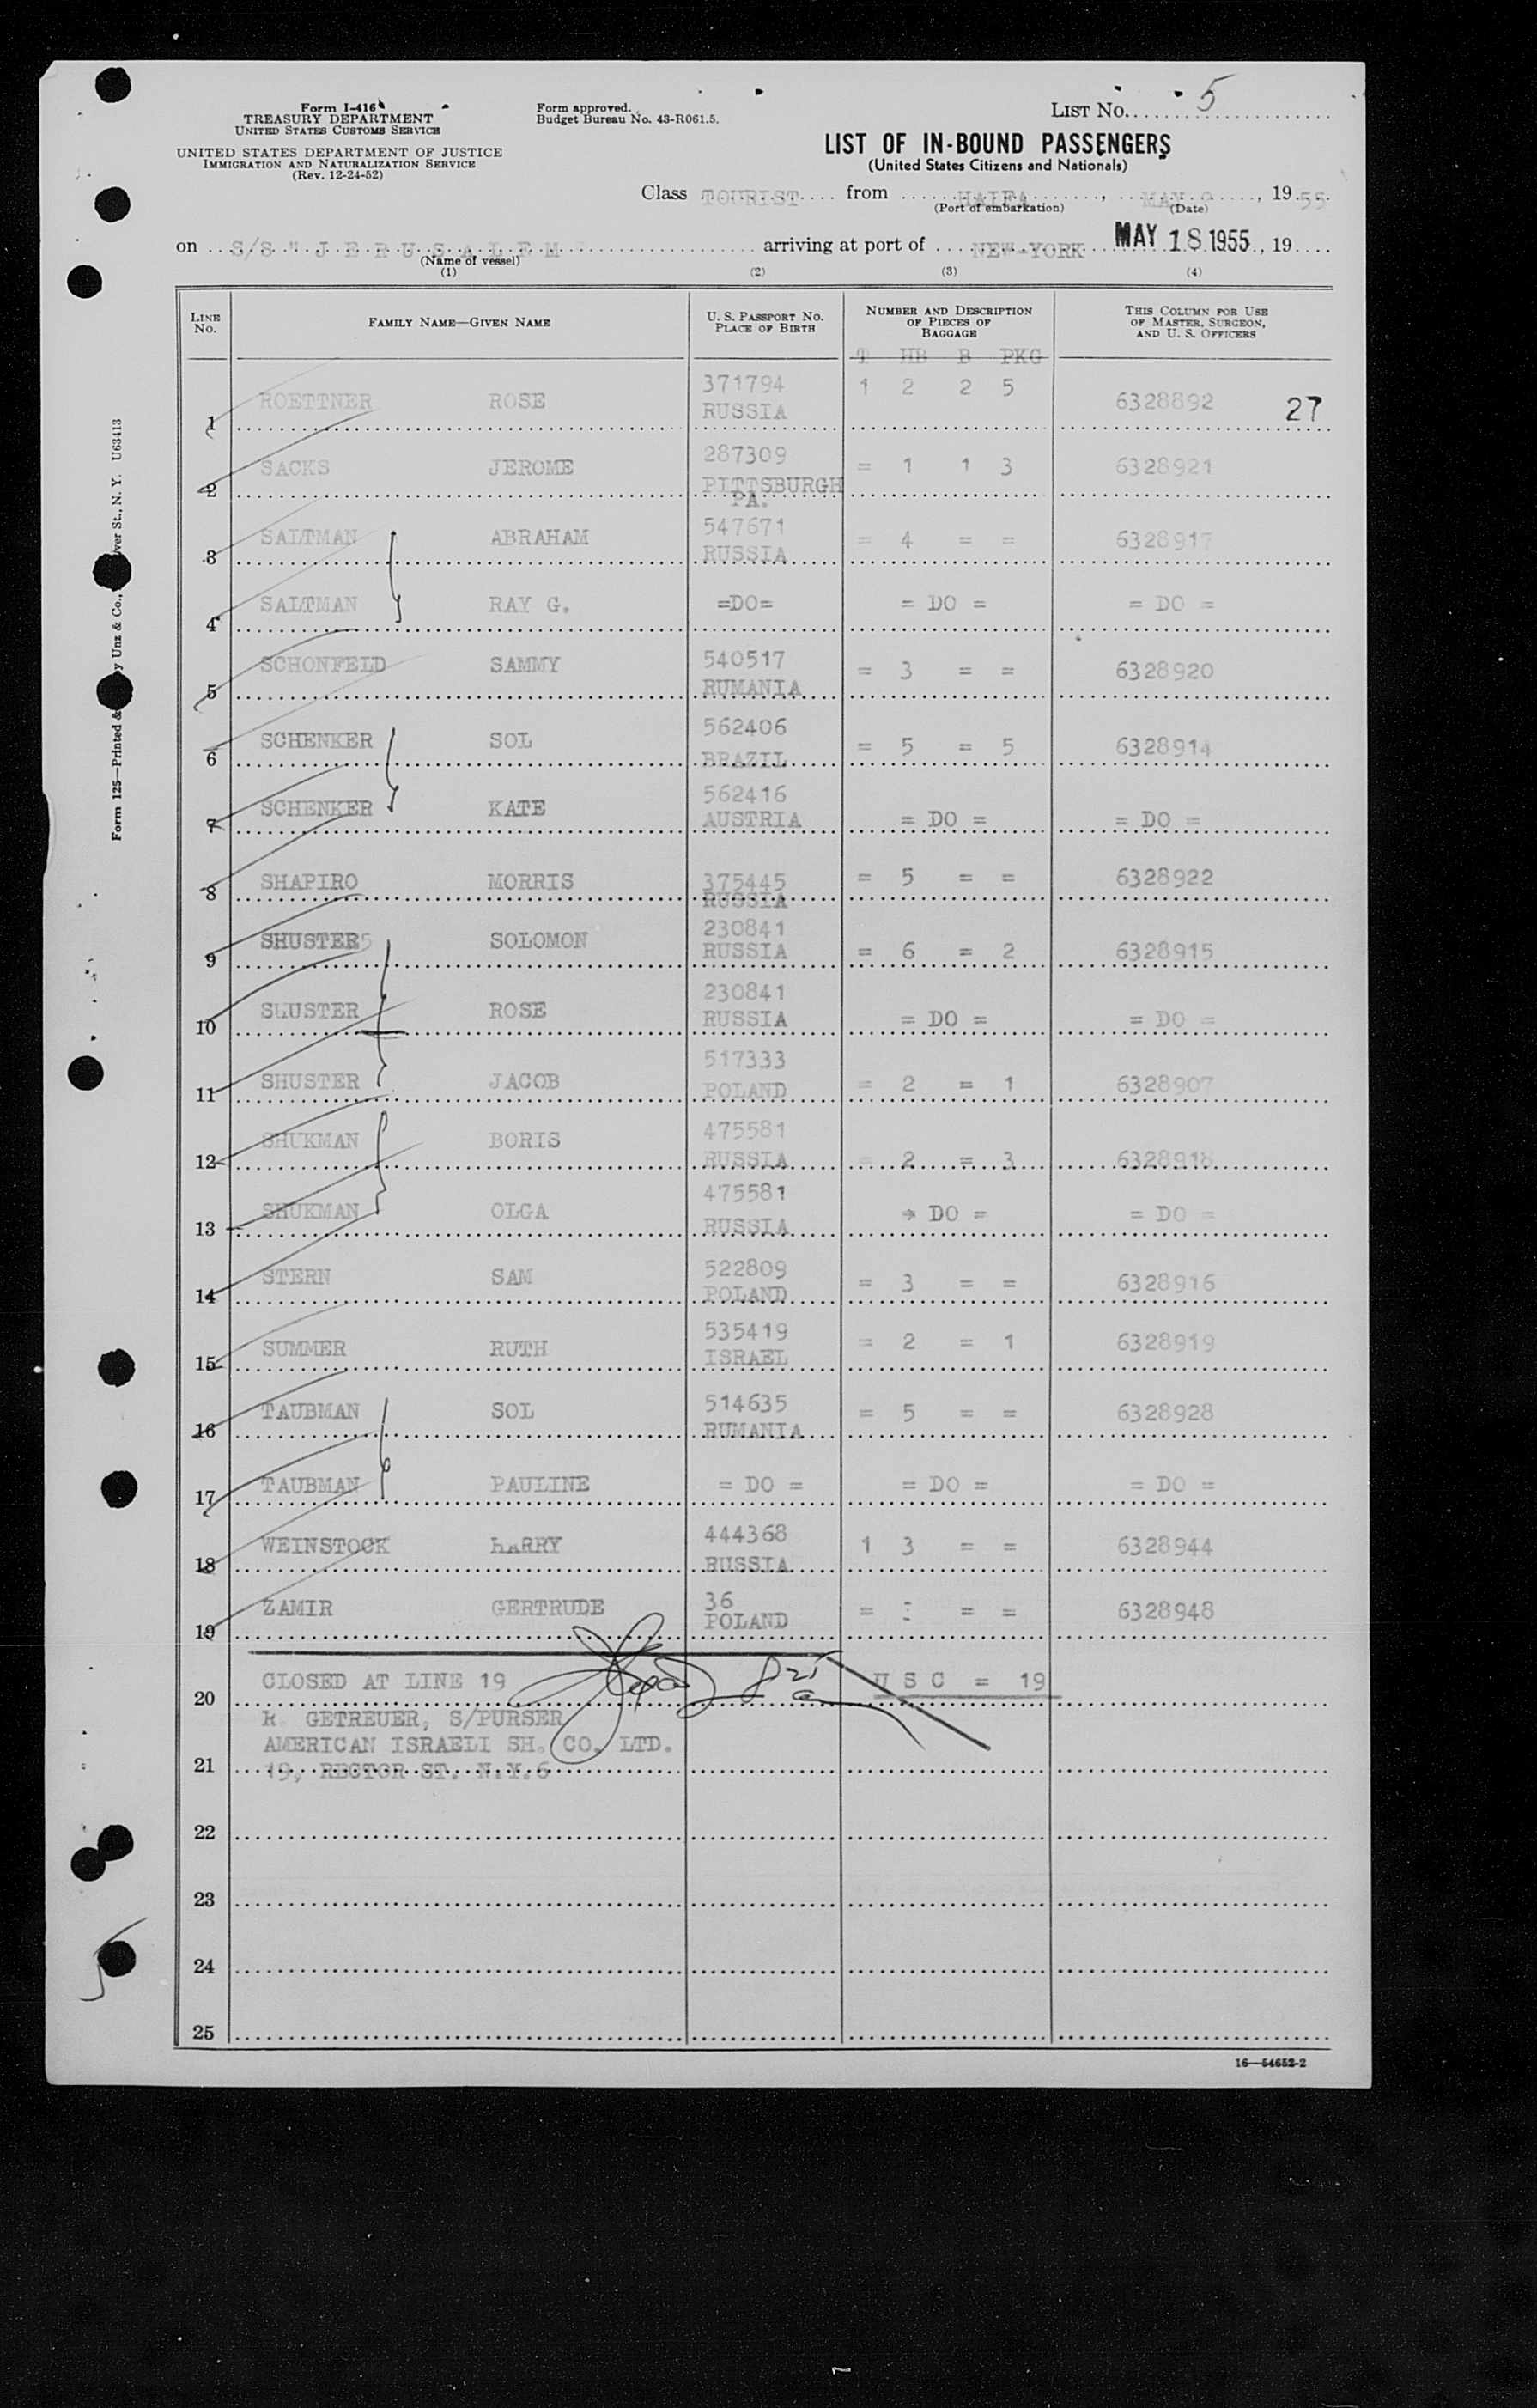 Form I-416
TREASURY DEPARTMENT
UNITED STATES CUSTOMS SERVICE
UNITED STATES DEPARTMENT OF JUSTICE
IMMIGRATION AND NATURALIZATION SERVICE
(Rev. 12-24-52)
Form approved.
Budget Bureau No. 43-R061.5.
LIST No. 5
LIST OF IN-BOUND PASSENGERS
(United States Citizens and Nationals)
Class TOURIST from HAIFA, MAY, 1955
(Port of embarkation) (Date)
on S/S " J E R U S A L E M arriving at port of NEW-YORK MAY 18 1955, 19
(Name of vessel)
(1) (2) (3) (4)
LINE No. FAMILY NAME—GIVEN NAME U. S. PASSPORT NO. PLACE OF BIRTH NUMBER AND DESCRIPTION OF PIECES OF BAGGAGE THIS COLUMN FOR USE OF MASTER, SURGEON, AND U. S. OFFICERS
T HB B PKG
1 ROETTNER ROSE 371794 RUSSIA 1 2 2 5 6328892 27
2 SACKS JEROME 287309 PITTSBURGH PA. = 1 1 3 6328921
3 SALTMAN ABRAHAM 547671 RUSSIA = 4 = = 6328917
4 SALTMAN RAY G. =DO= = DO = = DO =
5 SCHONFELD SAMMY 540517 RUMANIA = 3 = = 6328920
6 SCHENKER SOL 562406 BRAZIL = 5 = 5 6328914
7 SCHENKER KATE 562416 AUSTRIA = DO = = DO =
8 SHAPIRO MORRIS 375445 RUSSIA = 5 = = 6328922
9 SHUSTER5 SOLOMON 230841 RUSSIA = 6 = 2 6328915
10 SHUSTER ROSE 230841 RUSSIA = DO = = DO =
11 SHUSTER JACOB 517333 POLAND = 2 = 1 6328907
12 SHUKMAN BORIS 475581 RUSSIA = 2 = 3 6328918
13 SHUKMAN OLGA 475581 RUSSIA = DO = = DO =
14 STERN SAM 522809 POLAND = 3 = = 6328916
15 SUMMER RUTH 535419 ISRAEL = 2 = 1 6328919
16 TAUBMAN SOL 514635 RUMANIA = 5 = = 6328928
17 TAUBMAN PAULINE = DO = = DO = = DO =
18 WEINSTOCK HARRY 444368 RUSSIA 1 3 = = 6328944
19 ZAMIR GERTRUDE 36 POLAND = = = 6328948
20 CLOSED AT LINE 19 U S C = 19
GETREUER, S/PURSER
AMERICAN ISRAELI SH. CO. LTD.
21 19, RECTOR ST. N.Y.6
22
23
24
25
16—54652-2
Form 125—Printed & y Unz & Co., ver St., N. Y. U63413